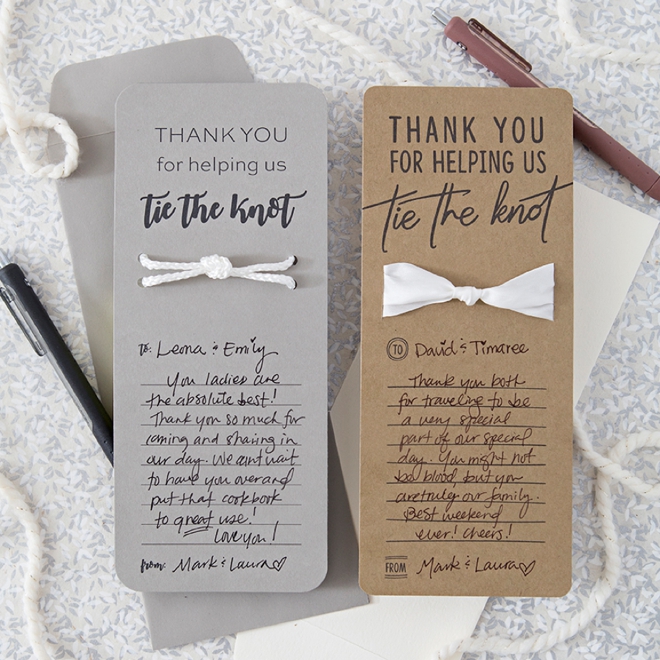 THANK YOU
for helping us
tie the knot
to: Leona & Emily
You ladies are
the absolute best!
Thank you so much for
coming and sharing in
our day. We can't wait
to have you over and
put that cookbook
to great use!
Love you!
from: Mark & Laura♡
THANK YOU
FOR HELPING US
tie the knot
TO David & Timaree
Thank you both
for traveling to be
a very special
part of our special
day. You might not
be blood, but you
are truly our family.
Best weekend
ever! Cheers!
FROM Mark & Laura♡